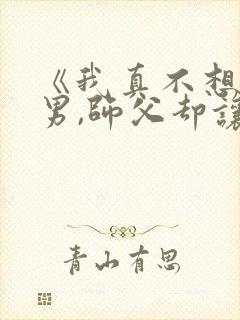 《我真不想
男,師父却讓
青山有思